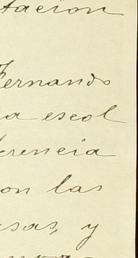 tación
Fernando
a escol
erencia
on las
sas, y